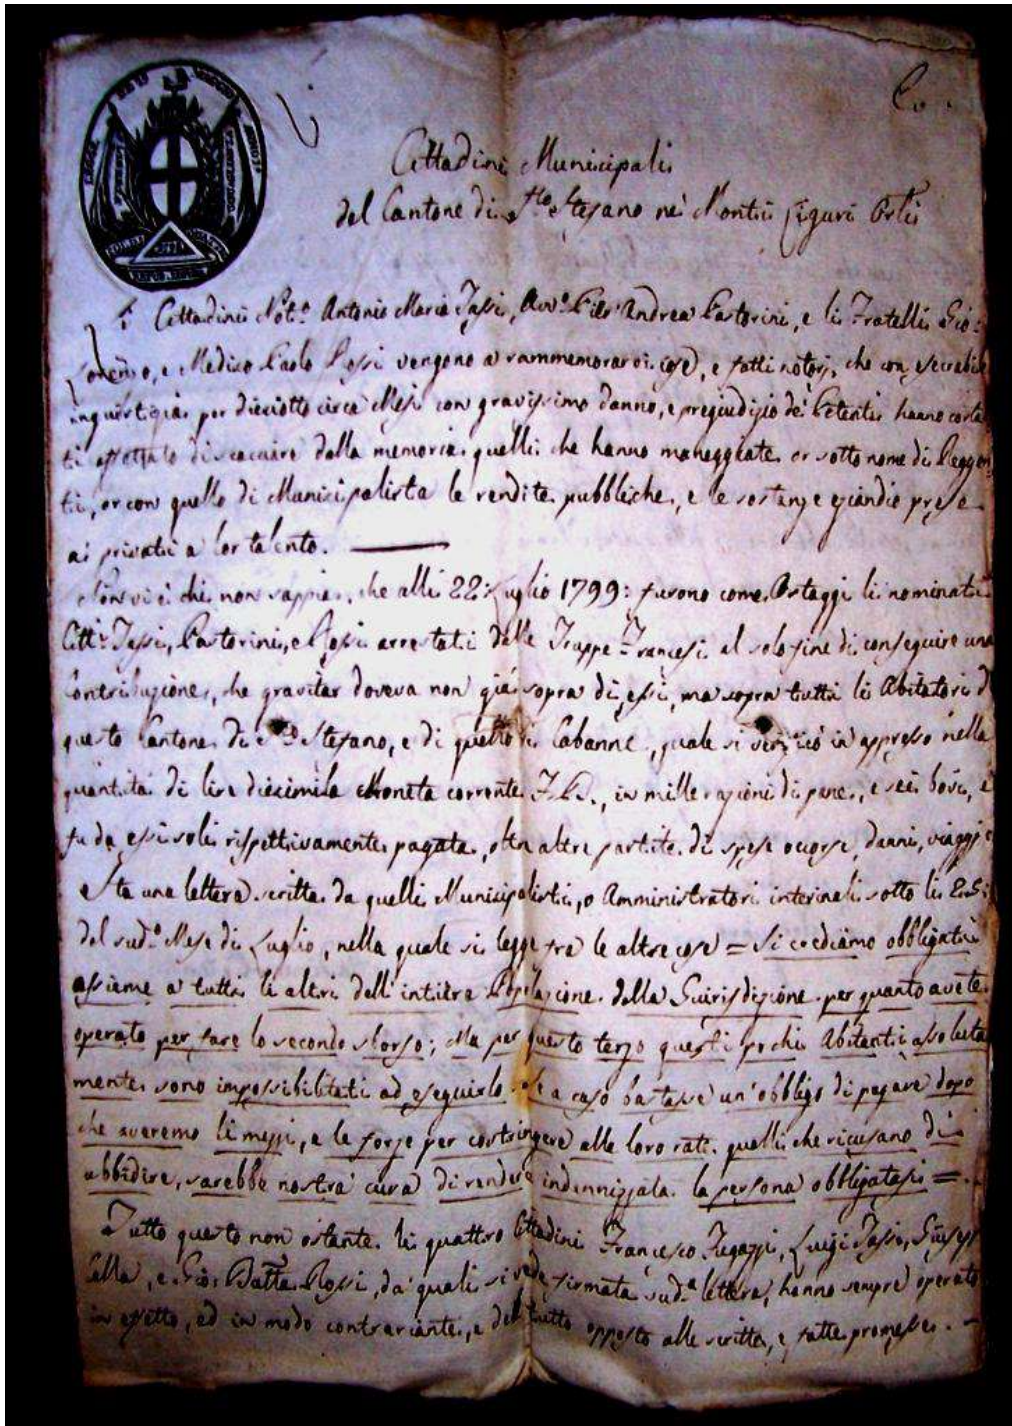 Cittadini Municipali
del Cantone di Sto Stefano nei Monti Liguri Orli
Cittadini Not.o Antonio Maria Tassi, Avv.o Pier Andrea Pastorini, e li Fratelli Gio:
Lorenzo, e Medico Paolo Rossi vengono a rammemorarvi cose, e fatti notorj, che con esecrabile
ingiustizia per dieciotto circa Mesi con gravissimo danno, e pregiudizio de' Petenti hanno certa
ti affettato di scacciare dalla memoria quelli che hanno maneggiate or sotto nome di Reggen
ti, or con quello di Municipalista le rendite pubbliche, e le sostanze eziandio prese
ai privati a lor talento.
Non vi è chi non sappia, che alli 22: Luglio 1799: furono come Ostaggi li nominati
Citt.i Tassi, Pastorini, e Rossi arrestati dalle Truppe Francesi al solo fine di conseguire una
Contribuzione, che gravitar doveva non già sopra di essi, ma sopra tutti li Abitatori d
questo Cantone di S.to Stefano, e di quello di Cabanne, quale si verificò in appresso nella
quantità di lire diecimila Moneta corrente F. B., in mille razioni di pane, e sei bovi, e
fu da essi soli rispettivamente pagata, oltra altre partite di spese occorse, danni, viaggi e
Sta una lettera scritta da quelli Municipalisti, o Amministratori interinali sotto li 25:
del sud.o Mese di Luglio, nella quale si legge fra le altre cose = Si crediamo obbligati
assieme a tutti li altri dell'intiera Popolazione della Giurisdizione per quanto avete
operato per fare lo secondo sborso; Ma per questo terzo questi pochi Abitanti assoluta
mente sono impossibilitati ad eseguirlo se a caso bastasse un' obbligo di pagare dopo
che averemo li mezzi, e le forze per costringere alle loro rati quelli che ricusano di
ubbidire, sarebbe nostra cura di rendere indennizzata la persona obbligatasi =
Tutto questo non ostante li quattro Cittadini Francesco Fugazzi, Luigi Tassi, Giusepp
Cella, e Gio: Batta Rossi, da' quali si vede firmata sud.a lettera, hanno sempre operato
in effetto, ed in modo contrariante, e del tutto opposto alle scritte, e fatte promesse.